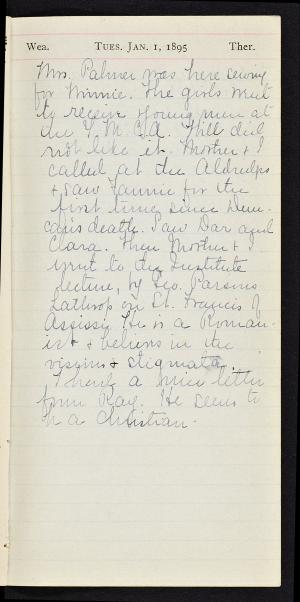 Wea. TUES. JAN. 1, 1895 Ther.
Mrs. Palmer was here sewing
for Winnie. The girls went
to receive young men at
the Y. M. C. A. Will did
not like it. Mother & I
called at the
& saw Fannie for the
first time since Dun-
can's death. Saw Dar and
Clara. Then Mother & I
went to the Institute
lecture, by Geo. Parsons
Lathrop on St. Francis of
Assissi. He is a Roman-
ist & believes in the
visions & stigmata.
I had a nice letter
from Ray. He seems to
be a Christian.